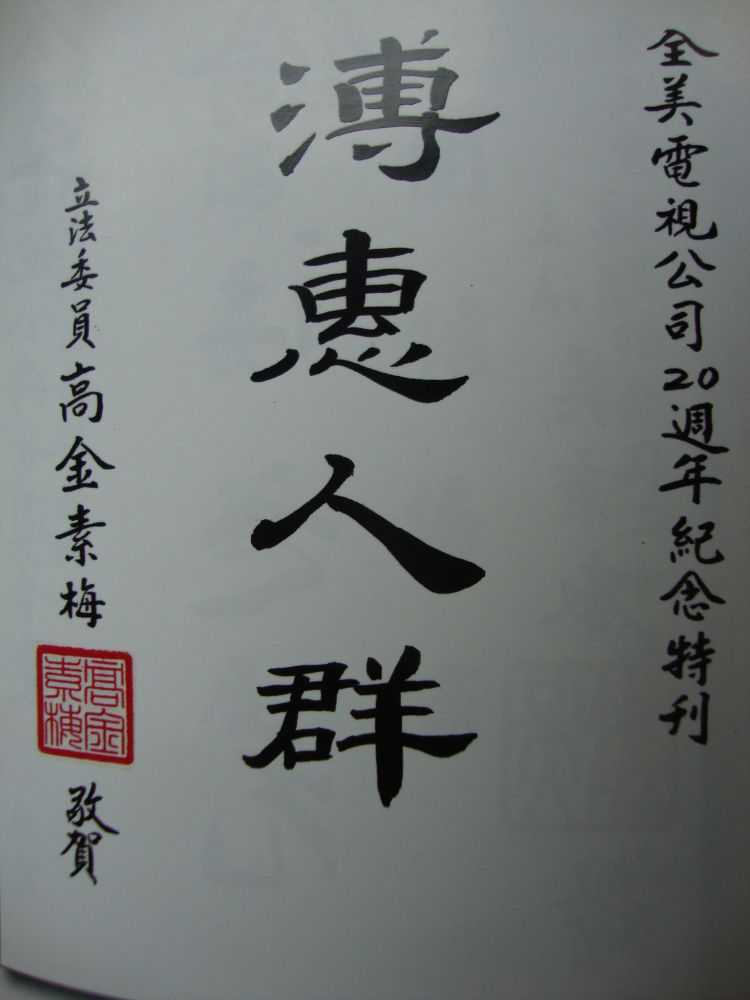 全美電視公司20週年紀念特刊
溥惠人群
立法委員高金素梅
高金素梅
敬賀